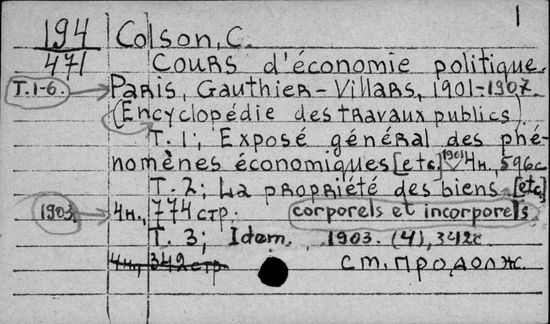 1
194 Colson, C.
471 Cours d'économie politique.
T.1-6. Paris, Gauthier-Villars, 1901-1907.
(Encyclopédie des travaux publics)
T. 1; Exposé général des phé-
nomènes économiques [etc.] 1901 4н., 596с
T. 2; La propriété des biens [etc]
1903. 4н., 774 стр. corporels et incorporels
T. 3; Idem. 1903. (4), 342с
4н., 342 стр. см. продолж.